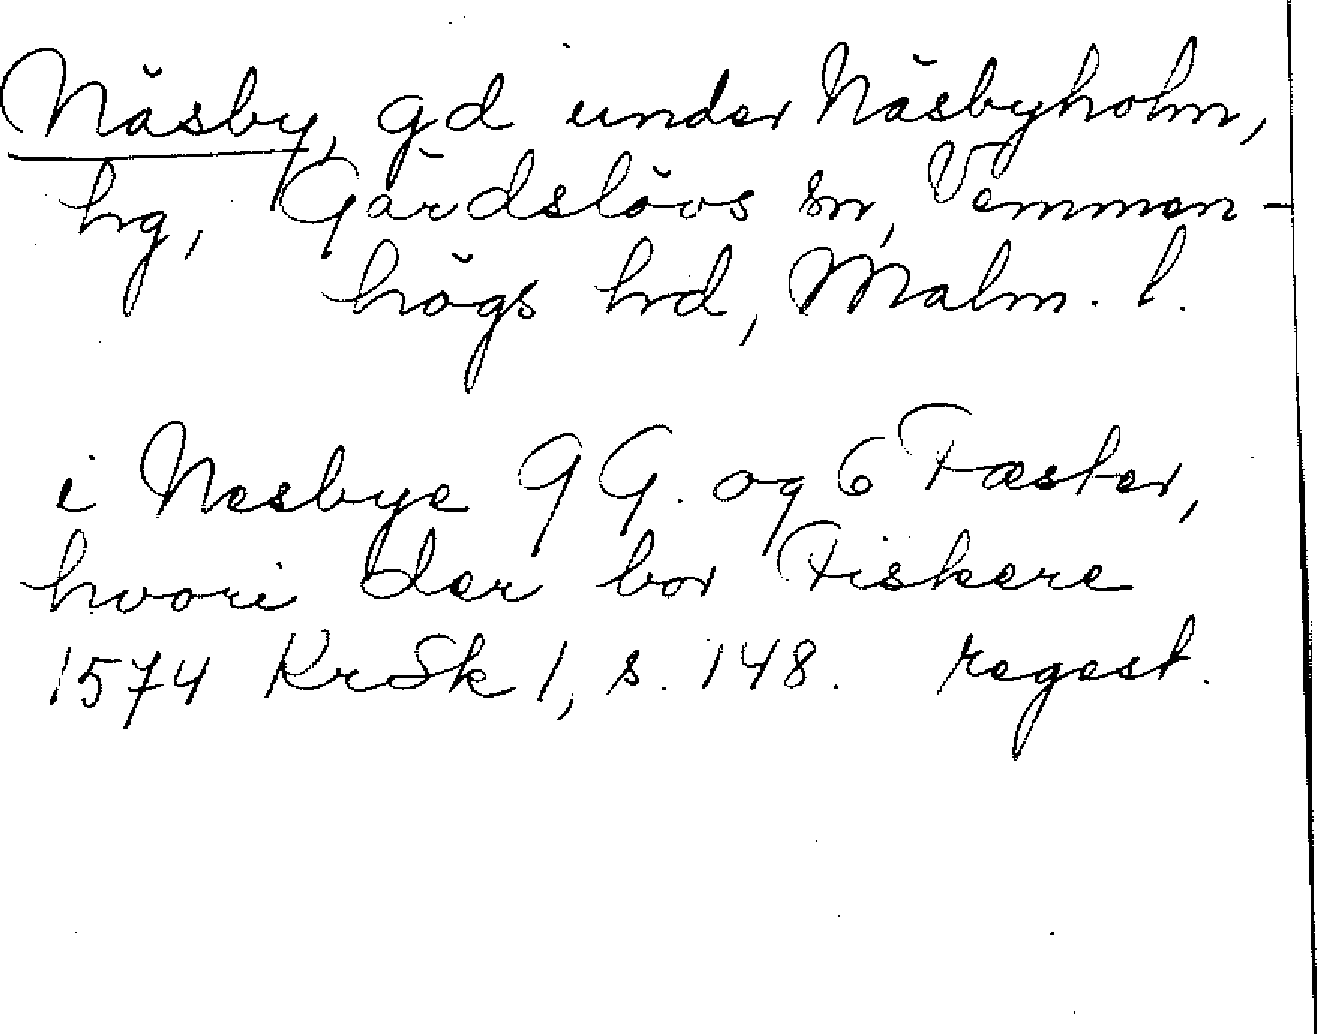 Näsby, gd under Näsbyholm,
hg, Gärdslövs sn, Vemmen-
högs hd, Malm. l.
i Nesbye 9 G. og 6 Fæster,
hvori der bor Fiskere
1574 KrSk 1, s. 148. regest.